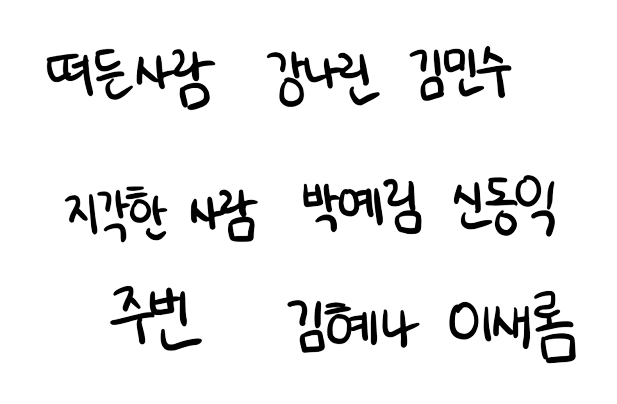 떠든사람 강나린 김민수
지각한 사람 박예림 신동익
주번 김혜나 이새롬